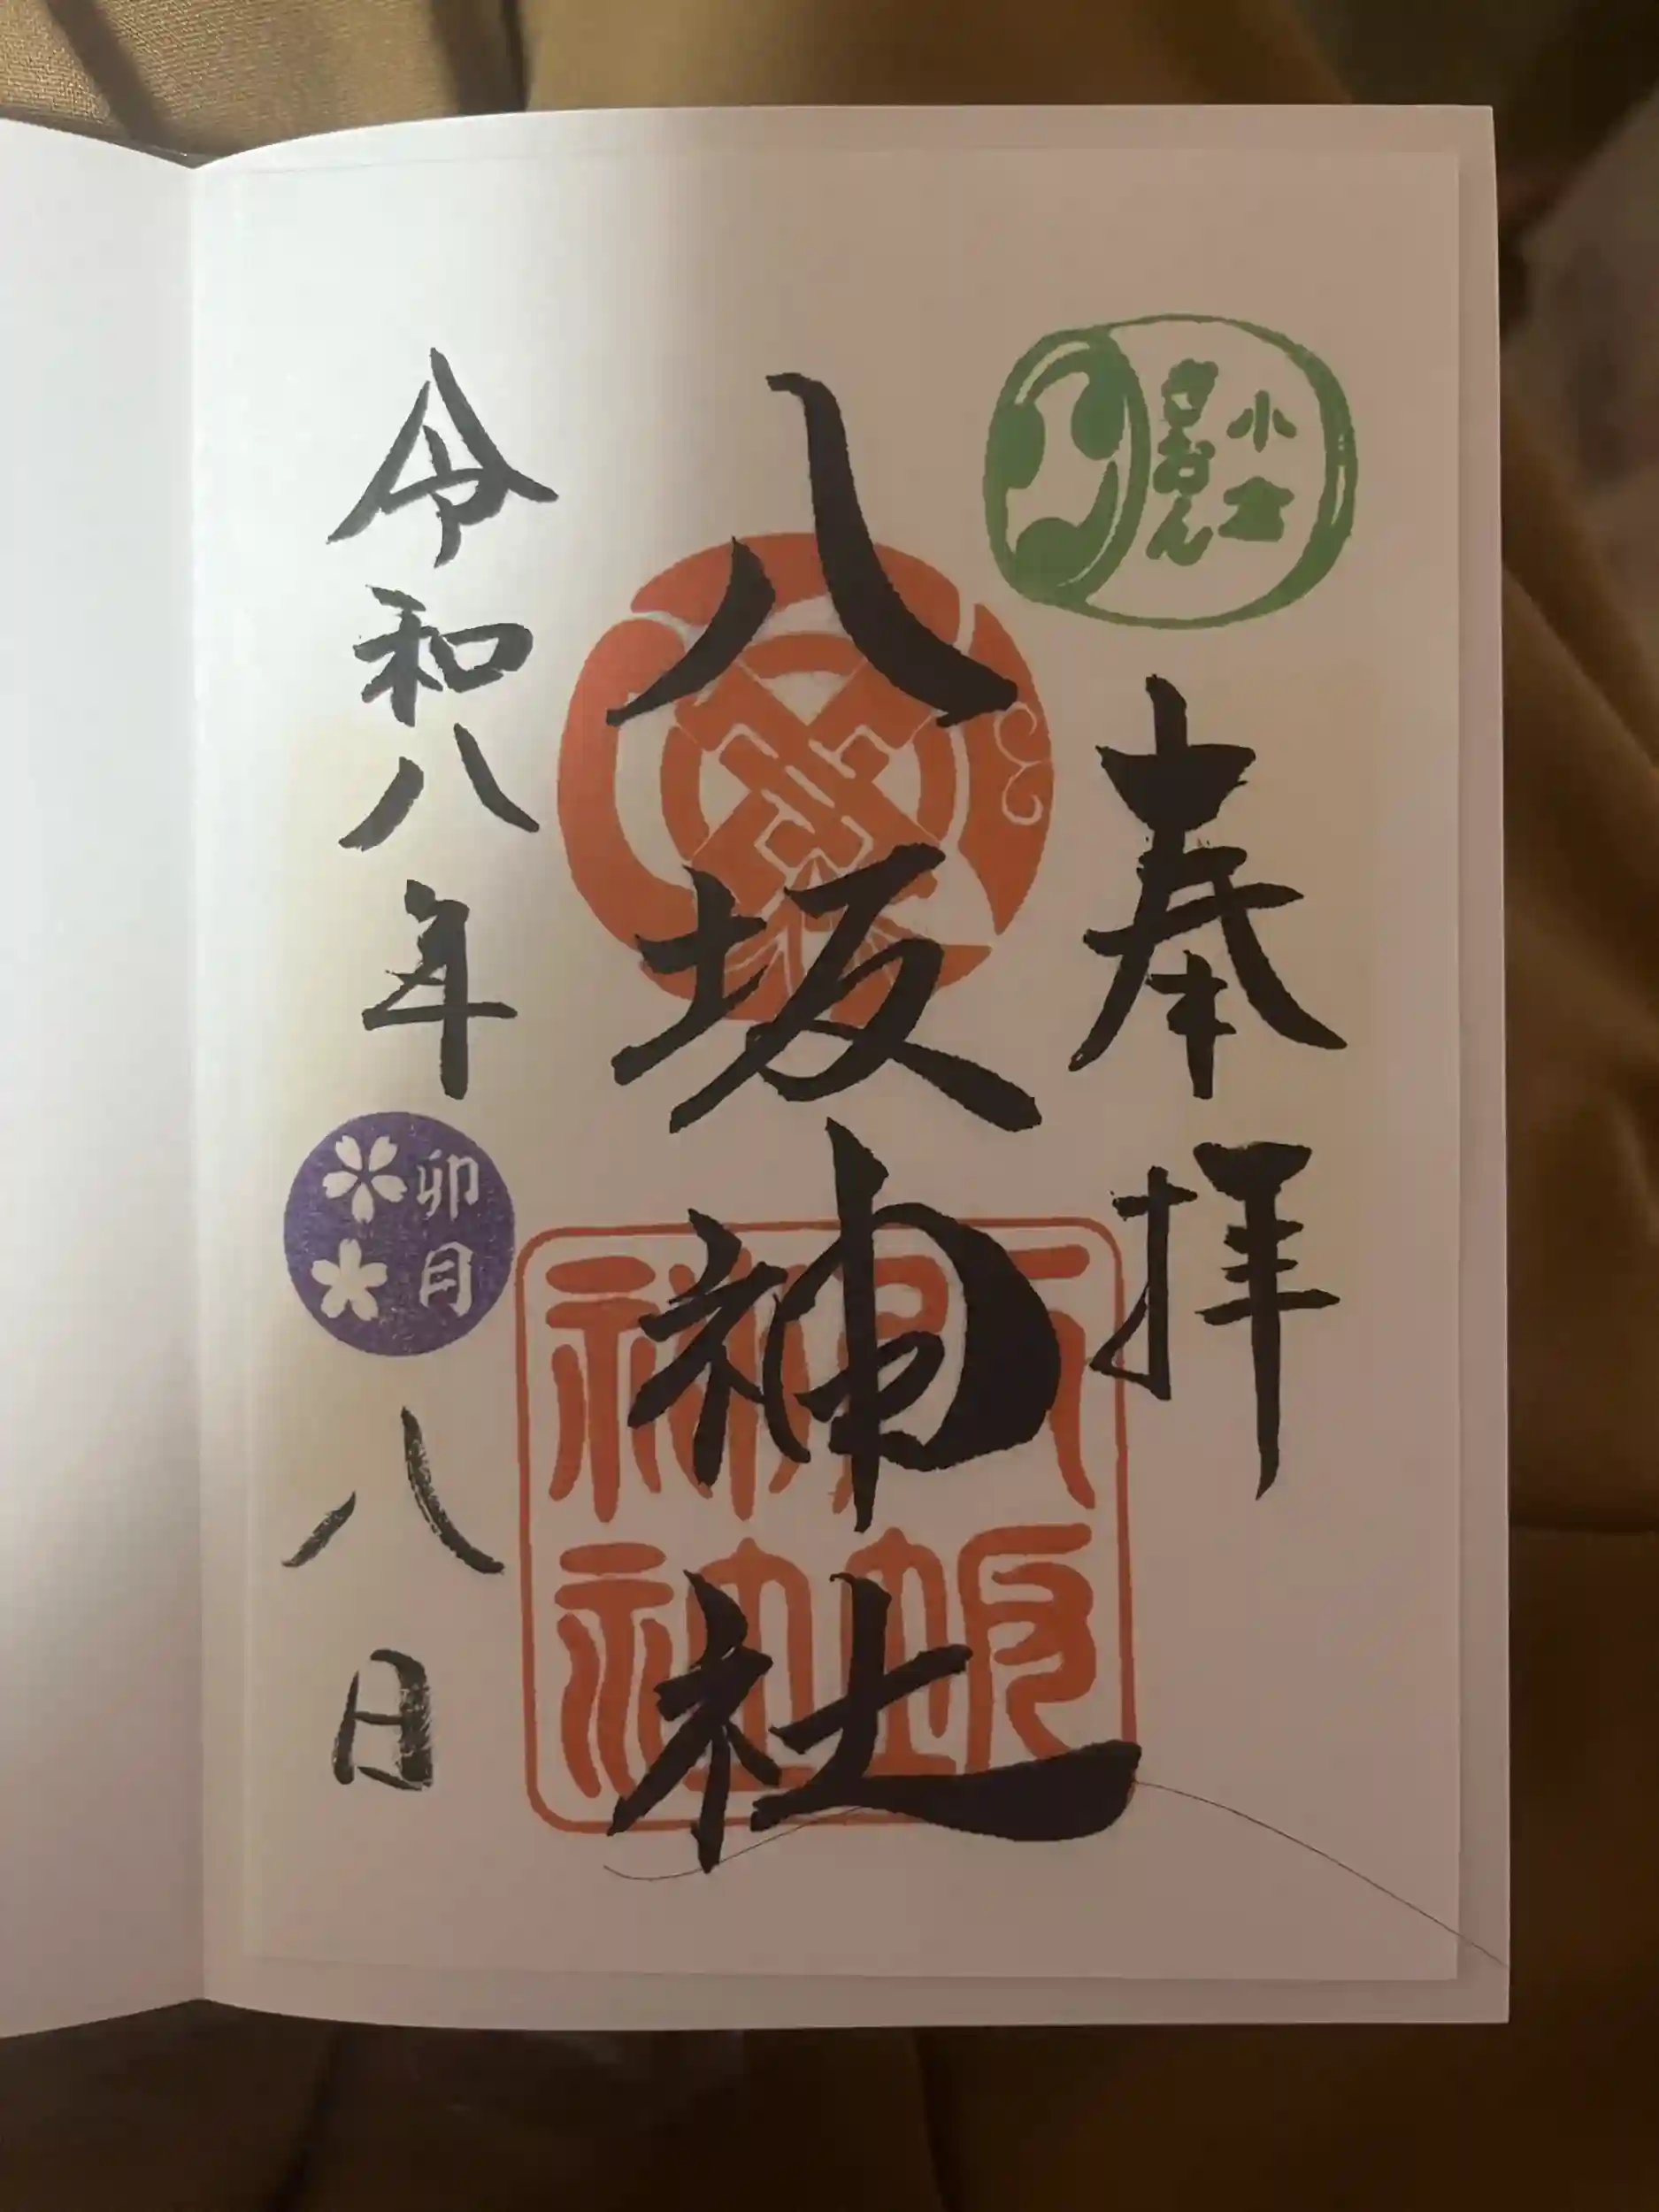 小倉
ぎおん
奉拝
八坂神社
八坂
神社
令和八年卯月八日